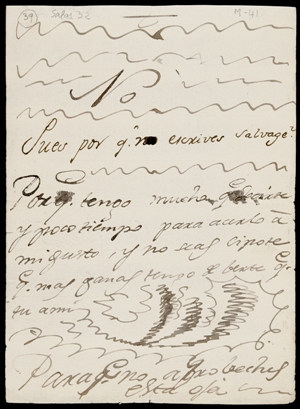 39
Salas 32
M-41
No
Pues por q.e no escrives salvage?
Porq.e tengo mucha
y poco tiempo para acerlo à
mi gusto, y no seas cipote
q.e mas ganas tengo de berte q.e
tu à mi
Para q.e no aprobeches
esta oja